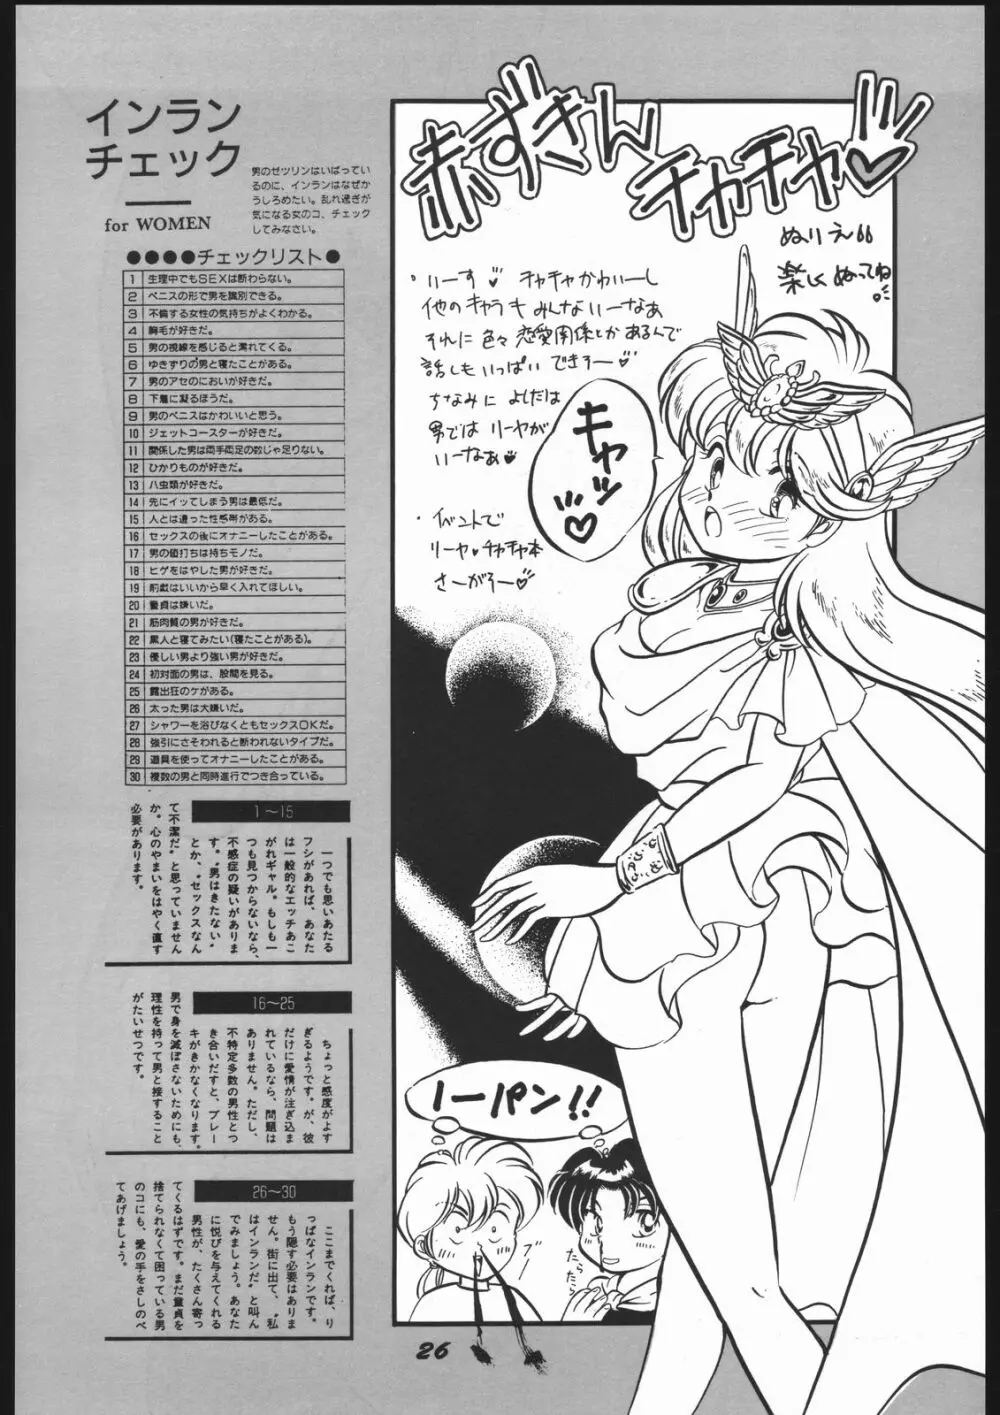 インラン
チェック
for WOMEN
男のゼツリンはいばってい
るのに、インランはなぜか
うしろめたい。乱れ過ぎが
気になる女のコ、チェック
してみなさい。
●●●●チェックリスト●
1 生理中でもSEXは断わらない。
2 ペニスの形で男を識別できる。
3 不倫する女性の気持ちがよくわかる。
4 胸毛が好きだ。
5 男の視線を感じると濡れてくる。
6 ゆきずりの男と寝たことがある。
7 男のアセのにおいが好きだ。
8 下着に凝るほうだ。
9 男のペニスはかわいいと思う。
10 ジェットコースターが好きだ。
11 関係した男は両手両足の数じゃ足りない。
12 ひかりものが好きだ。
13 八虫類が好きだ。
14 先にイッてしまう男は最低だ。
15 人とは違った性感帯がある。
16 セックスの後にオナニーしたことがある。
17 男の値打ちは持ちモノだ。
18 ヒゲをはやした男が好きだ。
19 前戯はいいから早く入れてほしい。
20 童貞は嫌いだ。
21 筋肉質の男が好きだ。
22 黒人と寝てみたい(寝たことがある)。
23 優しい男より強い男が好きだ。
24 初対面の男は、股間を見る。
25 露出狂のケがある。
26 太った男は大嫌いだ。
27 シャワーを浴びなくともセックスOKだ。
28 強引にさそわれると断われないタイプだ。
29 道具を使ってオナニーしたことがある。
30 複数の男と同時進行でつき合っている。
1〜15
一つでも思いあたる
フシがあれば、あなた
は一般的なエッチあこ
がれギャル。もしも一
つも見つからないなら、
不感症の疑いがありま
す。〝男はきたない〟
とか、〝セックスなん
て不潔だ〟と思っていません
か。心のやまいをはやく直す
必要があります。
16〜25
ちょっと感度がよす
ぎるようです。が、彼
だけに愛情が注ぎ込ま
れているなら、問題は
ありません。ただし、
不特定多数の男性とつ
き合いだすと、ブレー
キがきかなくなります。
男で身を滅ぼさないためにも、
理性を持って男と接すること
がたいせつです。
26〜30
ここまでくれば、り
っぱなインランです。
もう隠す必要はありま
せん。街に出て、〝私
はインランだ〟と叫ん
でみましょう。あなた
に悦びを与えてくれる
男性が、たくさん寄っ
てくるはずです。まだ童貞を
捨てられなくて困っている男
のコにも、愛の手をさしのべ
てあげましょう。
赤ずきん
チャチャ♡
ぬりえ〝
楽しくぬってね!
・いーす♥ チャチャかわいーし
他のキャラも みんないーなぁ
それに色々 恋愛関係とか あるんで
話しも いっぱい できそー♡
ちなみに よしだは
男では リーヤが
いーなぁ♥
・イベントで
リーヤ・チャチャ本
さーがそー♡
キャッ♡
たらたら
26